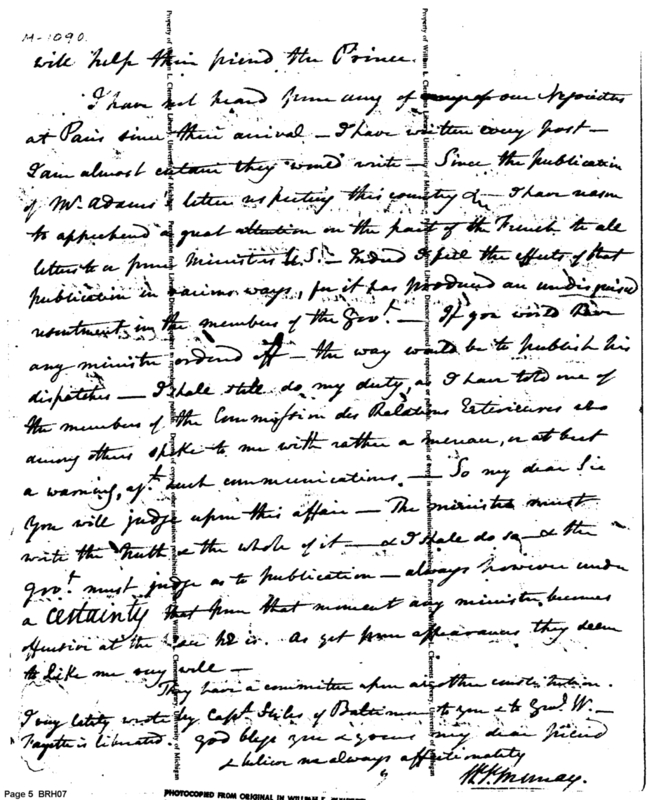 M-1090.
will help their friend the Prince.
I have not heard from any of our Negociators
at Paris since their arrival — I have written every post —
I am almost certain they would write — Since the publication
of Mr. Adams' letter respecting this country &c — I have reason
to apprehend a great attention on the part of the French to all
letters to & from Ministers U.S. — Indeed I feel the effects of that
publication in various ways, for it has produced an undisguised
resentment in the members of the Govt. — If you would have
any minister ordered off — the way would be to publish his
dispatches — I shall still do my duty, as I have told one of
the members of the Commission des Relations Exterieures who
among others spoke to me with rather a menace, or at best
a warning, agt. such communications. — So my dear Sir
you will judge upon this affair — The minister must
write the truth & the whole of it — & I shall do so — & the
Govt. must judge as to publication — always however under
a certainty that from that moment any minister becomes
offensive at the place he is. As yet from appearances they seem
to like me very well —
They have a committee upon another constitution.
I very lately wrote by Capt. Stiles of Baltimore to you & to Genl. W. —
Fayette is liberated. God bless you & yours my dear friend
& believe me always affectionately
W. V. Murray.
Property of William L. Clements Library, University of Michigan
Property of William L. Clements Library, University of Michigan
Page 5 BRH07
PHOTOCOPIED FROM ORIGINAL IN